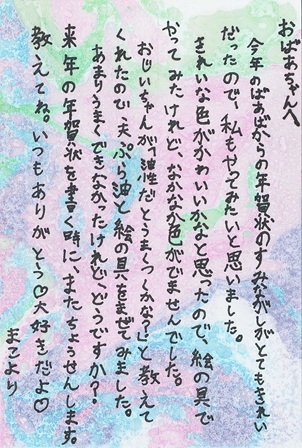 おばあちゃんへ
今年のばあばからの年賀状のすみながしがとてもきれい
だったので、私もやってみたいと思いました。
きれいな色がかわいいかなと思ったので、絵の具で
やってみたけれど、なかなか色がでませんでした。
おじいちゃんが「油性だとうまくつくかな？」と教えて
くれたので、天ぷら油と絵の具をまぜてみました。
あまりうまくできなかったけれど、どうですか？
来年の年賀状を書く時に、またちょうせんします。
教えてね。いつもありがとう♡大好きだよ♡
まこより